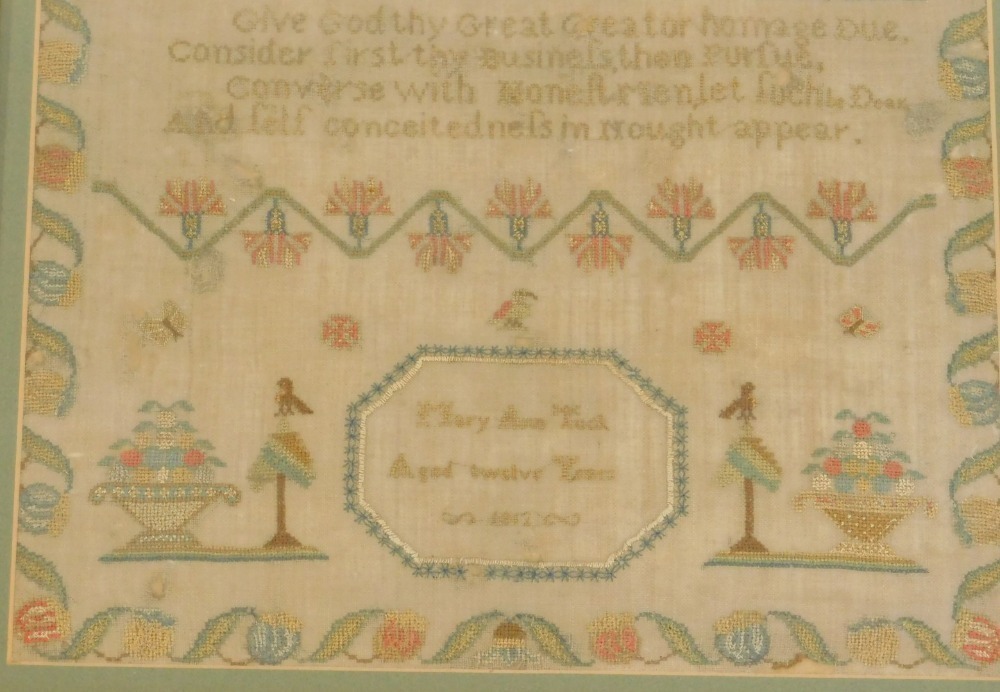 Give God thy Great Creator homage Due,
Conſider firſt thy Buſineſs, then Purſue,
Converſe with Honeſt Men, let ſuch be Dear
And ſelf conceitedneſs in nought appear.
Mary Ann Tuck
Aged twelve Years